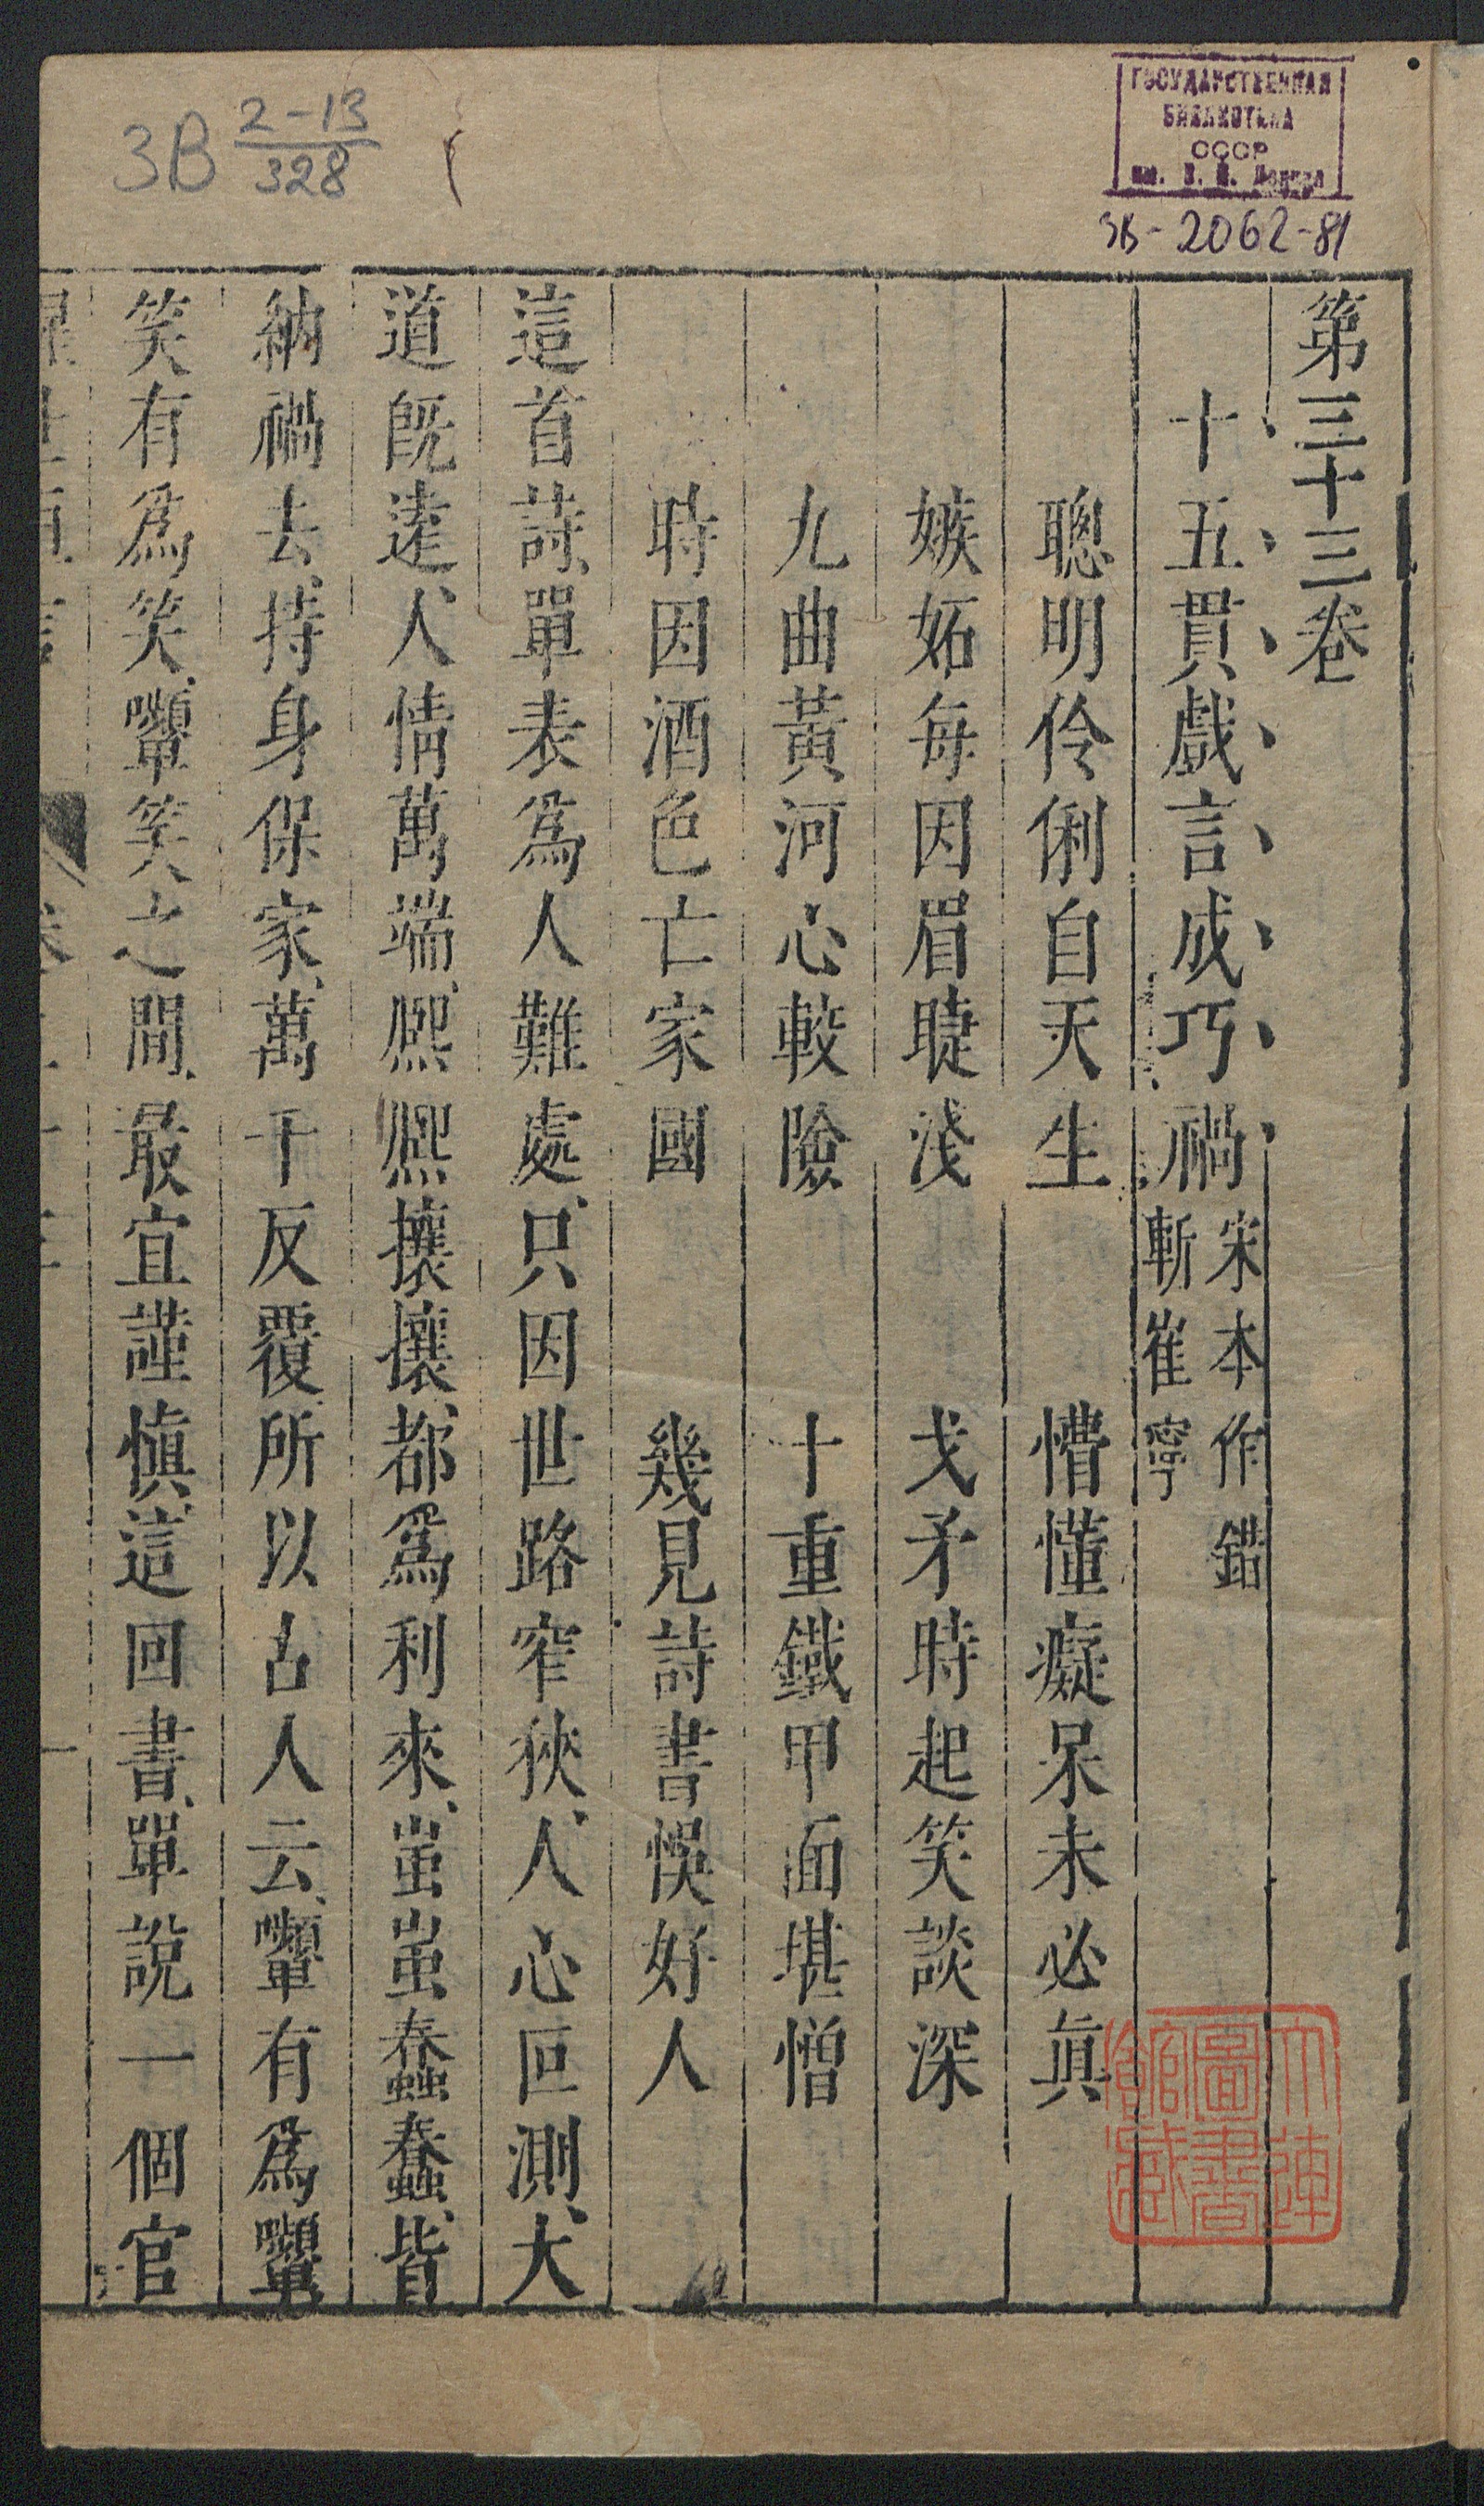 ЗВ 2-13/328
ГОСУДАРСТВЕННАЯ
БИБЛИОТЕКА
СССР
им. В. И. Ленина
ЗВ-2062-81
第三十三卷
十五貫戲言成巧禍
宋本作錯
斬崔寧
聰明伶俐自天生 懵懂癡呆未必眞
嫉妬每因眉睫淺 戈矛時起笑談深
九曲黃河心較險 十重鐵甲面堪憎
時因酒色亡家國 幾見詩書悞好人
這首詩、單表爲人難處、只因世路窄狹、人心叵測、大
道旣遠、人情萬端、熈熈攘攘、都爲利來、蚩蚩蠢蠢、皆
納禍去、持身保家、萬千反覆、所以古人云、嚬有爲嚬
笑有爲笑、嚬笑之間、最宜謹慎、這回書、單說一個官
大連
圖書
館藏